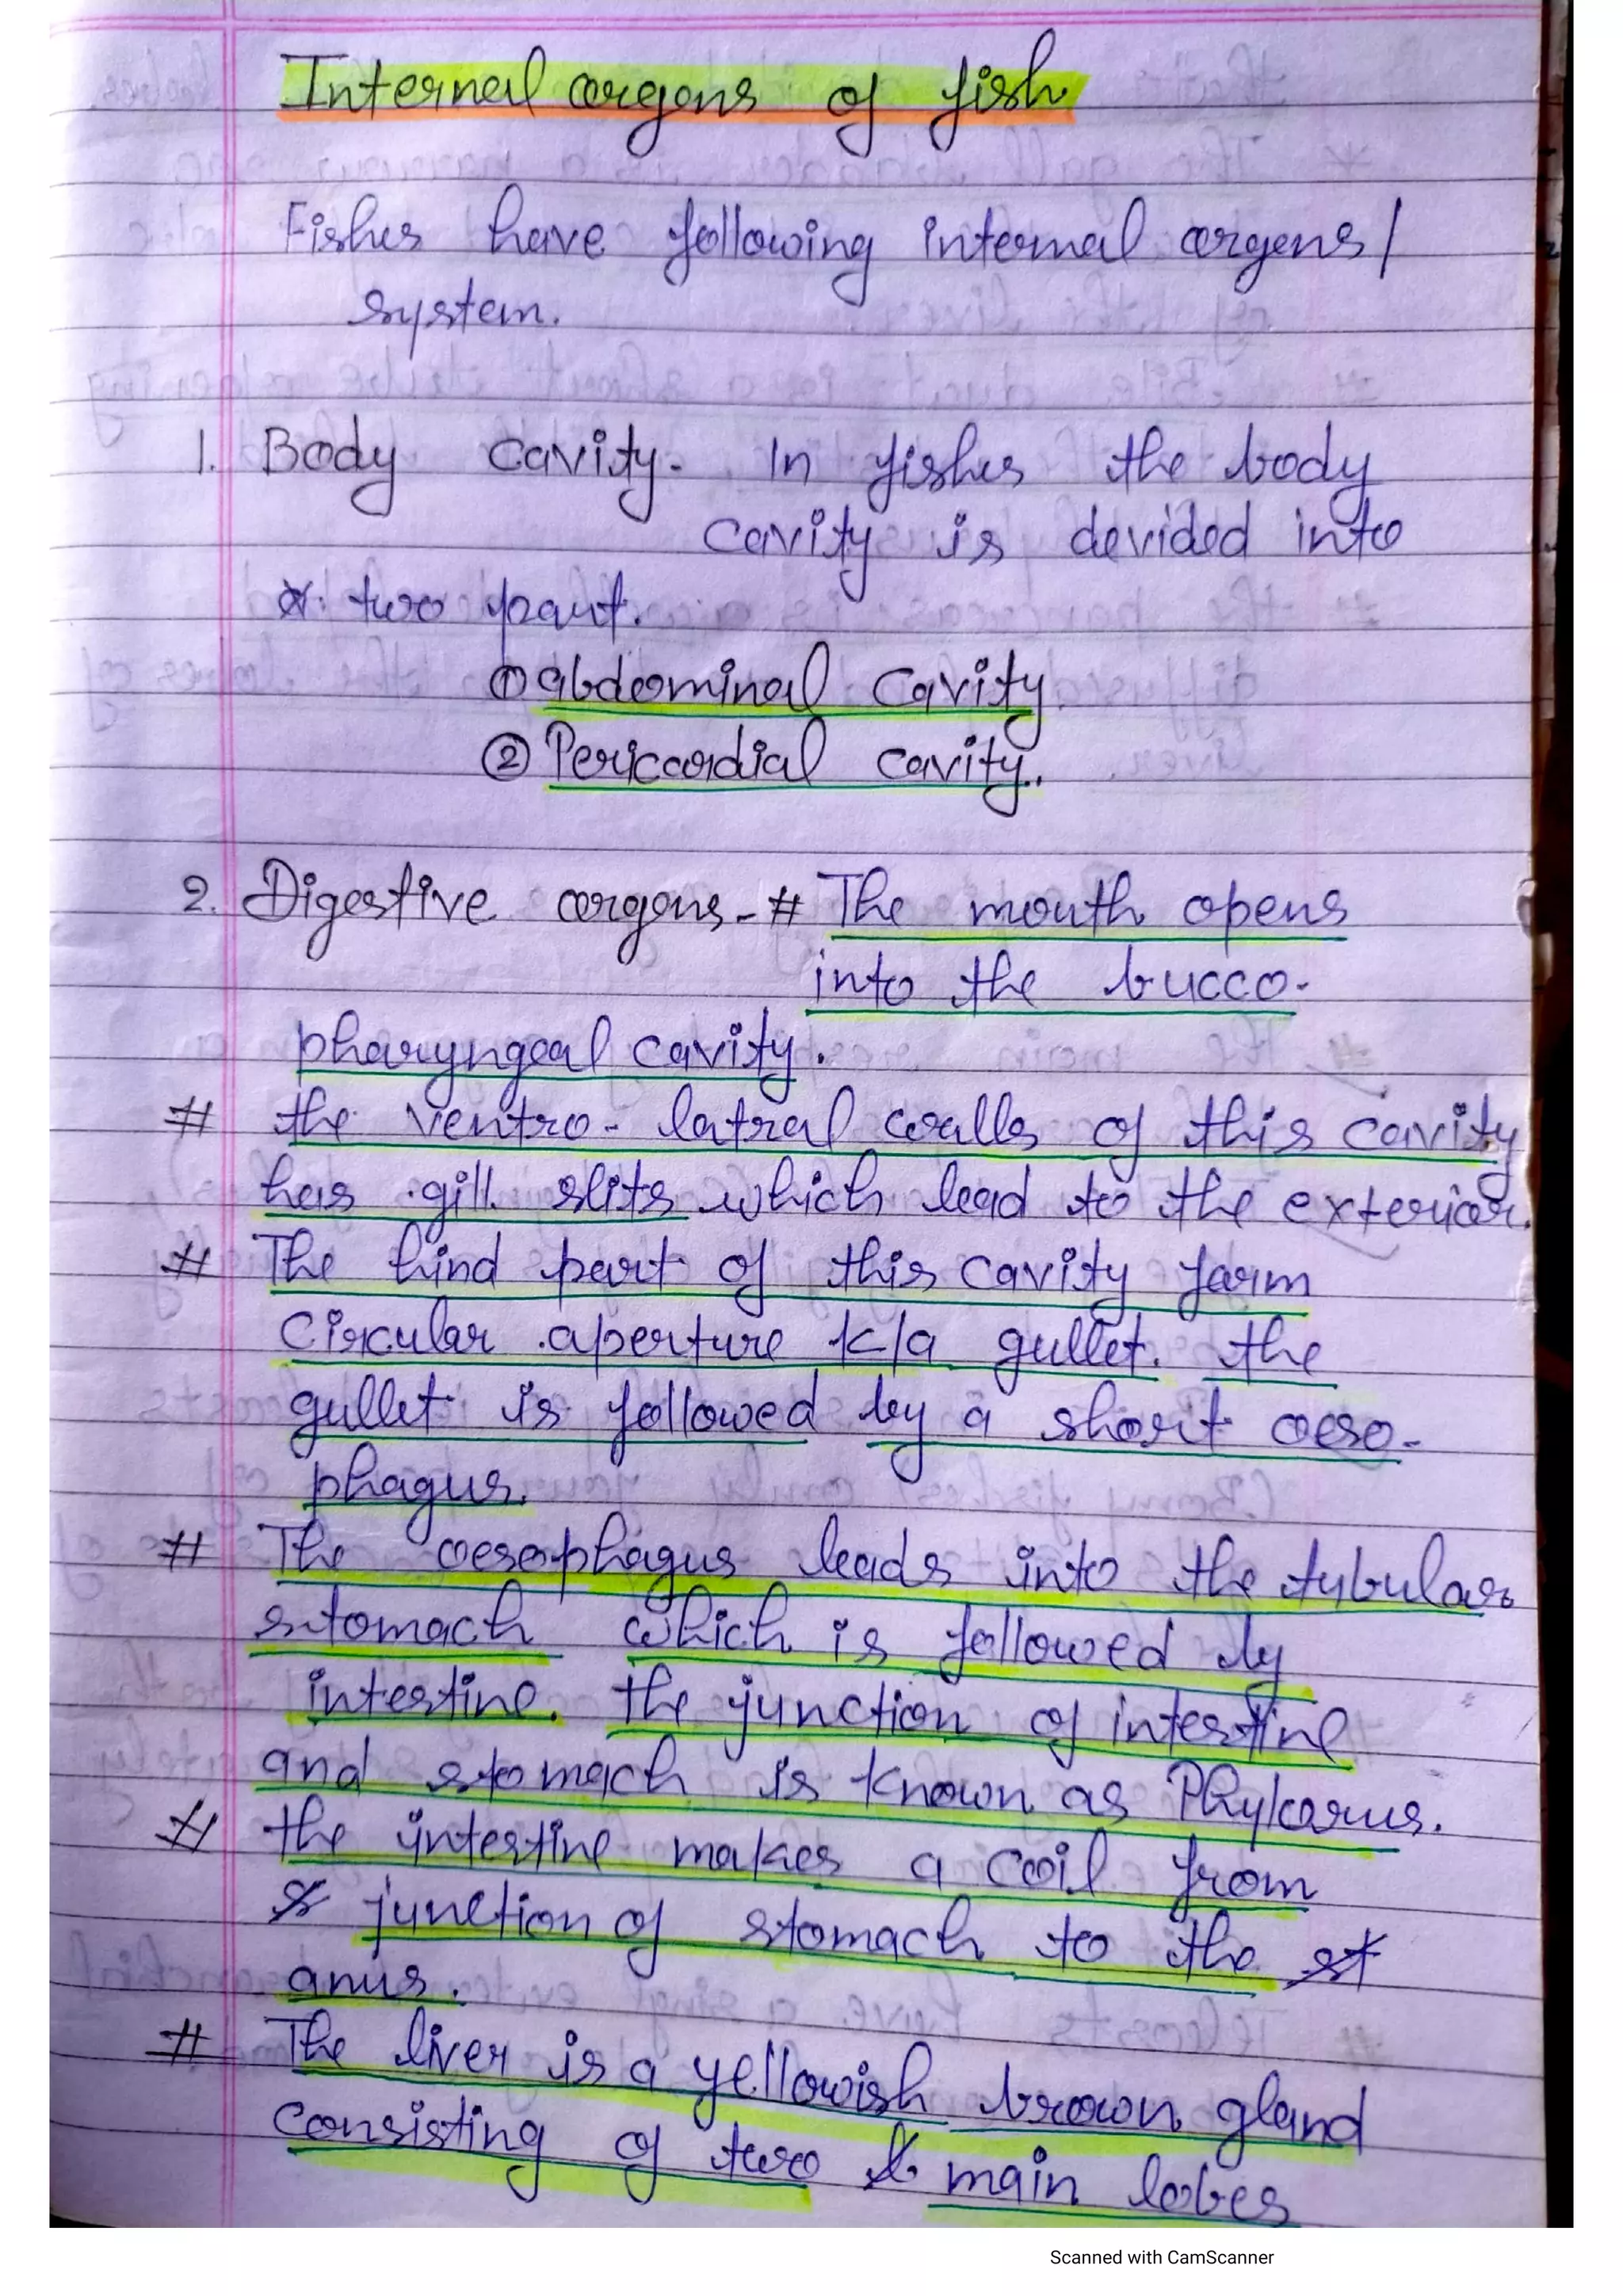 Internal organs of fish
Fishes have following internal organs/
system.
1. Body cavity- In fishes the body
cavity is devided into
two part.
① abdominal cavity
② Pericordial cavity.
2. Digestive organs - # The mouth opens
into the bucco-
pharyngeal cavity.
# the ventro- latral walls of this cavity
has gill slits which lead to the exterior.
# The hind part of this cavity form
Circular aperture k/a gullet. the
gullet is followed by a short oeso-
phagus.
# The oesophagus leads into the tubular
stomach which is followed by
intestine. the junction of intestine
and stomach is known as Phylorus.
# the intestine makes a coil from
junction of stomach to the
anus.
# The liver is a yellowish brown gland
consisting of two main lobes
Scanned with CamScanner